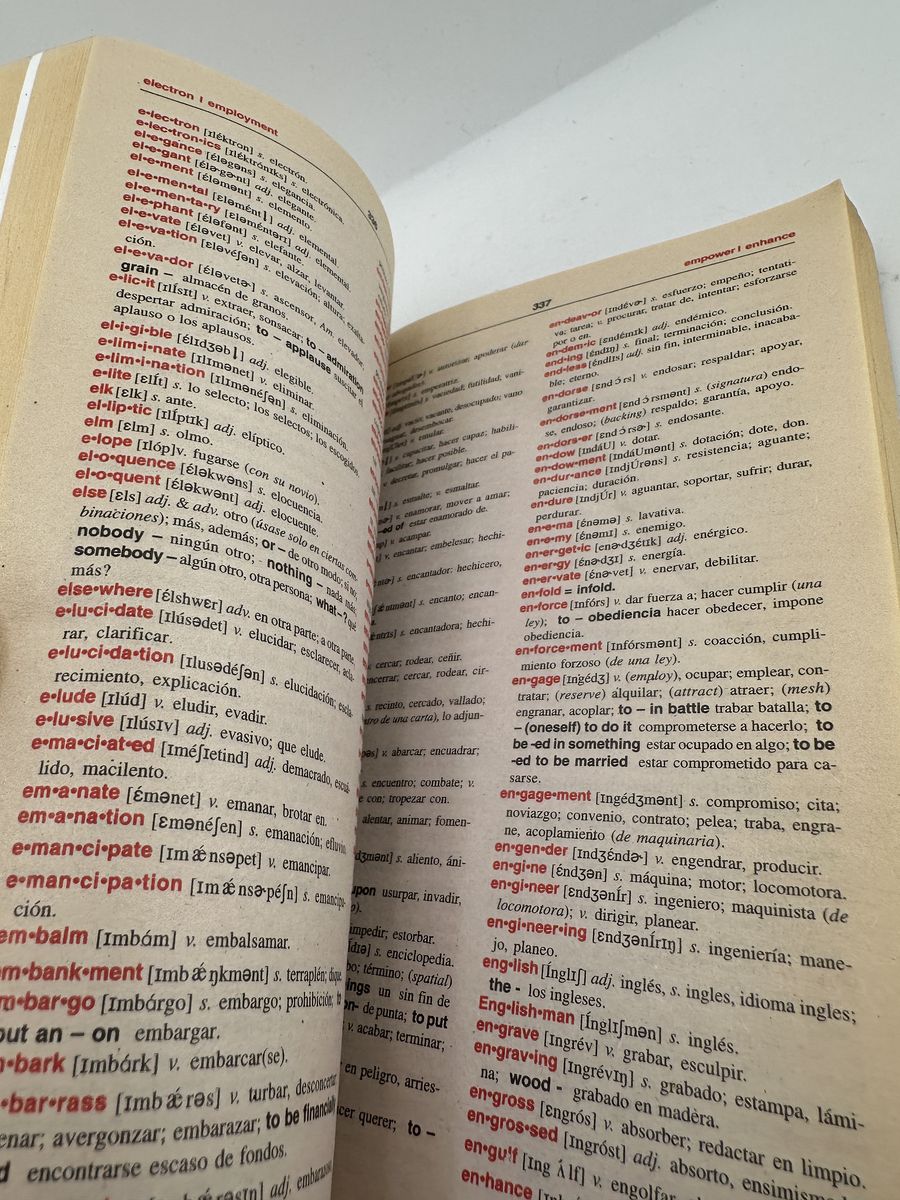 electron | employment
336
e•lec•tron [ɪléktrɑn] s. electrón.
e•lec•tron•ics [ɪlɛktrɑ́nɪks] s. electrónica.
el•e•gance [ɛ́ləgəns] s. elegancia.
el•e•gant [ɛ́lə-gə-nt] adj. elegante.
el•e•ment [ɛ́ləmənt] s. elemento.
el•e•men•tal [ɛləmɛ́nt̩l] adj. elemental.
el•e•men•ta•ry [ɛləmɛ́ntərɪ] adj. elemental.
el•e•phant [ɛ́ləfənt] s. elefante.
el•e•vate [ɛ́ləvet] v. elevar, alzar, levantar.
el•e•va•tion [ɛləvéʃən] s. elevación; altura; exalta-
ción.
el•e•va•dor [ɛ́ləvetɚ] s. ascensor, Am. elevador;
grain – almacén de granos.
e•lic•it [ɪlÍsɪt] v. extraer, sonsacar; to – admiration
despertar admiración; to – applause suscitar el
aplauso o los aplausos.
el•i•gi•ble [ɛ́lɪdʒəb̩l] adj. elegible.
e•lim•i•nate [ɪlÍmənet] v. eliminar.
e•lim•i•na•tion [ɪlɪmənéʃən] s. eliminación.
e•lite [ɛlÍt] s. lo selecto; los selectos; los escogidos
elk [ɛlk] s. ante.
el•lip•tic [ɪlÍptɪk] adj. elíptico.
elm [ɛlm] s. olmo.
e•lope [ɪlóp]v. fugarse (con su novio).
el•o•quence [ɛ́ləkwəns] s. elocuencia.
el•o•quent [ɛ́ləkwənt] adj. elocuente.
else [ɛls] adj. & adv. otro (úsase solo en ciertas com-
binaciones); más, además; or – de otro modo; si no
nobody – ningún otro; nothing – nada más;
somebody – algún otro, otra persona; what – ? qué
más?
else•where [ɛ́lshwɛr] adv. en otra parte; a otra parte.
e•lu•ci•date [ɪlúsədet] v. elucidar; esclarecer, acla-
rar, clarificar.
e•lu•ci•da•tion [ɪlusədéʃən] s. elucidación; escla-
recimiento, explicación.
e•lude [ɪlúd] v. eludir, evadir.
e•lu•sive [ɪlúsɪv] adj. evasivo; que elude.
e•ma•ci•at•ed [ɪméʃɪetind] adj. demacrado, escuá-
lido, macilento.
em•a•nate [ɛ́mənet] v. emanar, brotar en.
em•a•na•tion [ɛmənéʃen] s. emanación; efluvio.
e•man•ci•pate [ɪmǽnsəpet] v. emancipar.
e•man•ci•pa•tion [ɪmǽnsə-péʃn] s. emancipa-
ción.
em•balm [ɪmbɑ́m] v. embalsamar.
m•bank•ment [ɪmbǽŋkmənt] s. terraplén; dique.
m•bar•go [ɪmbɑ́rgo] s. embargo; prohibición; to
put an – on embargar.
•bark [ɪmbɑ́rk] v. embarcar(se).
•bar•rass [ɪmbǽrəs] v. turbar, desconcertar
enar; avergonzar; embarazar; to be financially
d encontrarse escaso de fondos.
[ɪmbǽrəsɪn] adj. embarazoso
337
empower | enhance
v. autorizar, apoderar (dar
s. emperatriz.
s. vaciedad; futilidad, vani-
adj. vacío; vacante, desocupado; vano
vaciar; desaguar, desembocar.
v. emular.
v. capacitar, hacer capaz; habili-
facilitar, hacer posible.
v. decretar, promulgar, hacer el pa-
s. esmalte; v. esmaltar.
v. enamorar, mover a amar;
-ed of estar enamorado de.
v. acampar.
v. encantar, embelesar, hechi-
s. encantador; hechicero,
s. encanto; encan-
s. encantadora; hechi-
cercar, rodear, ceñir.
encerrar, cercar, rodear, cir-
s. recinto, cercado, vallado;
(dentro de una carta), lo adjun-
v. abarcar; encuadrar;
s. encuentro; combate; v.
e con; tropezar con.
alentar, animar; fomen-
s. aliento, áni-
upon usurpar, invadir,
o).
impedir; estorbar.
s. enciclopedia.
bo; término; (spatial)
ings un sin fin de
on- de punta; to put
v. acabar; terminar;
en peligro, arries-
cer querer; to –
en•deav•or [ɪndɛ́vɚ] s. esfuerzo; empeño; tentati-
va; tarea; v. procurar, tratar de, intentar; esforzarse
por o en.
en•dem•ic [ɛndɛ́mɪk] adj. endémico.
end•ing [ɛ́ndɪŋ] s. final; terminación; conclusión.
end•less [ɛ́ndlɪs] adj. sin fin, interminable, inacaba-
ble; eterno.
en•dorse [ɛndɔ́rs] v. endosar; respaldar; apoyar,
garantizar.
en•dorse•ment [ɛndɔ́rsmənt] s. (signatura) endo-
se, endoso; (backing) respaldo; garantía, apoyo.
en•dors•er [ɛndɔ́rsɚ] s. endosante.
en•dow [ɪndáU] v. dotar.
en•dow•ment [ɪndáUmənt] s. dotación; dote, don.
en•dur•ance [ɪndjÚrəns] s. resistencia; aguante;
paciencia; duración.
en•dure [ɪndjÚr] v. aguantar, soportar, sufrir; durar,
perdurar.
en•e•ma [ɛ́nəmə] s. lavativa.
en•e•my [ɛ́nəmɪ] s. enemigo.
en•er•get•ic [ɛnɚdʒɛ́tɪk] adj. enérgico.
en•er•gy [ɛ́nɚdʒɪ] s. energía.
en•er•vate [ɛ́nɚvet] v. enervar, debilitar.
en•fold = infold.
en•force [ɪnfórs] v. dar fuerza a; hacer cumplir (una
ley); to – obediencia hacer obedecer, impone
obediencia.
en•force•ment [ɪnfórsmənt] s. coacción, cumpli-
miento forzoso (de una ley).
en•gage [ɪngédʒ] v. (employ), ocupar; emplear, con-
tratar; (reserve) álquilar; (attract) atraer; (mesh)
engranar, acoplar; to – in battle trabar batalla; to
– (oneself) to do it comprometerse a hacerlo; to
be -ed in something estar ocupado en algo; to be
-ed to be married estar comprometido para ca-
sarse.
en•gage•ment [ɪngédʒmənt] s. compromiso; cita;
noviazgo; convenio, contrato; pelea; traba, engra-
ne, acoplamiento (de maquinaria).
en•gen•der [ɪndʒɛ́ndɚ] v. engendrar, producir.
en•gi•ne [ɛ́ndʒən] s. máquina; motor; locomotora.
en•gi•neer [ɛndʒənÍr] s. ingeniero; maquinista (de
locomotora); v. dirigir, planear.
en•gi•neer•ing [ɛndʒənÍrɪŋ] s. ingeniería; mane-
jo, planeo.
eng•lish [Íŋglɪʃ] adj. inglés, s. ingles, idioma ingles;
the - los ingleses.
Eng•lish•man [Íŋglɪʃmən] s. inglés.
en•grave [ɪngrév] v. grabar, esculpir.
en•grav•ing [ɪngrévɪŋ] s. grabado; estampa, lámi-
na; wood - grabado en madera.
en•gross [ɛngrós] v. absorber; redactar en limpio.
en•gros•sed [ɪngróst] adj. absorto, ensimism
en•gulf [ɪngʌ́lf] v. engolfar
en•hance